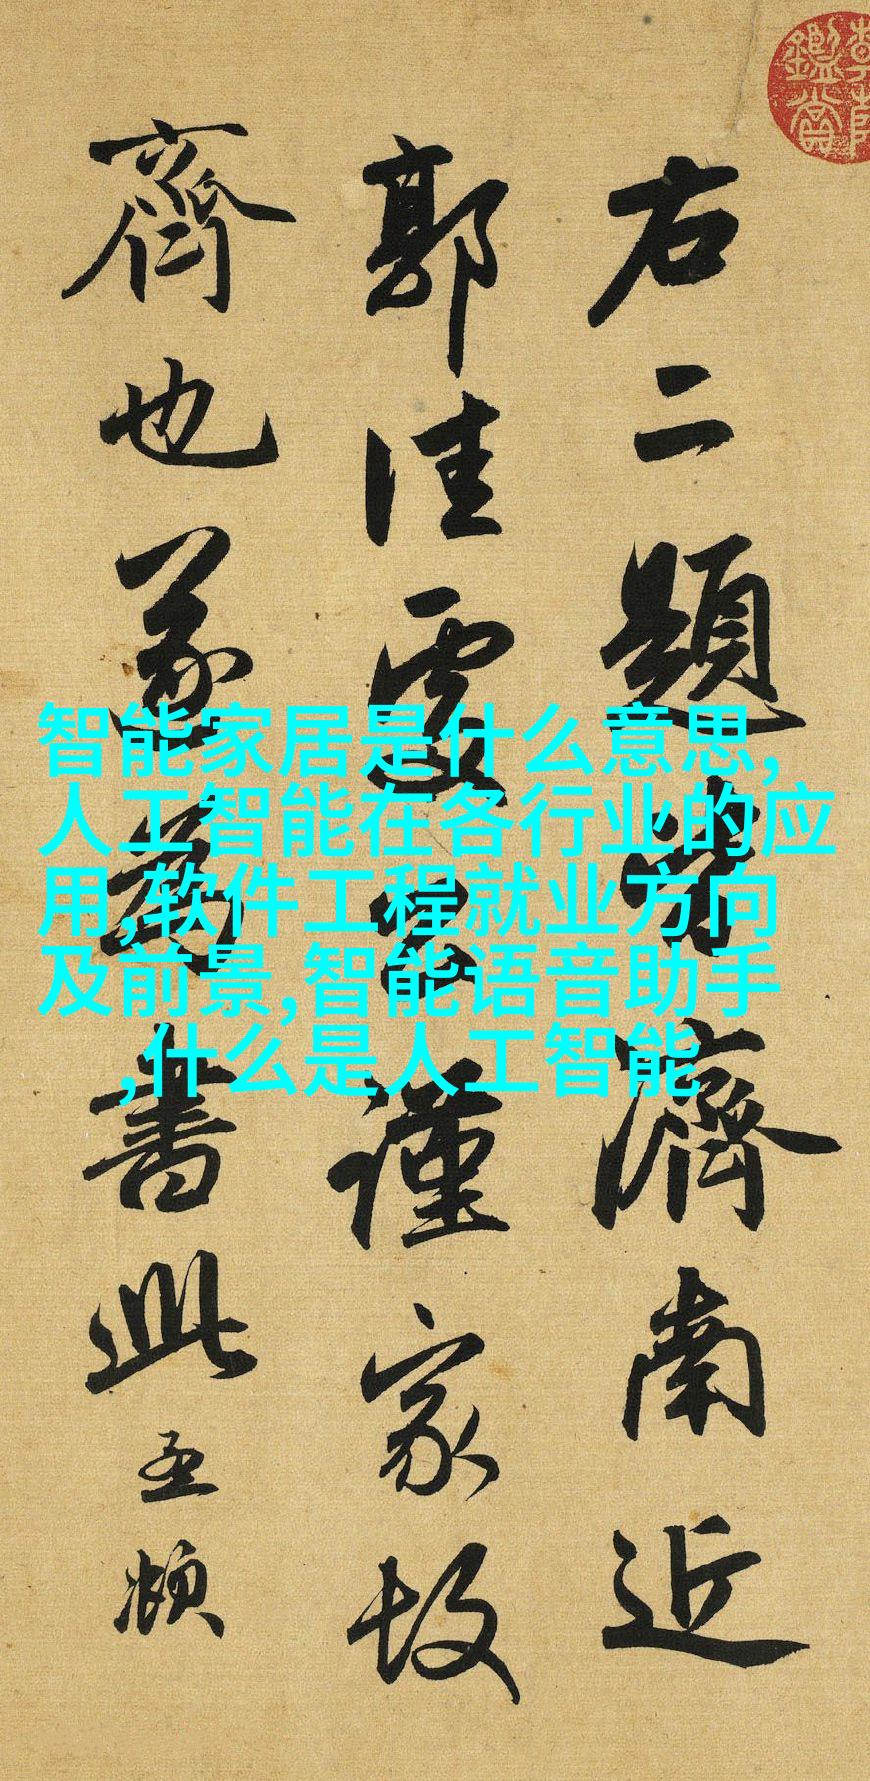 鑑賞
右二題皆濟南近
郭佳處公謹家故
齊也遂為書此孟頫
智能家居是什么意思,
人工智能在各行业的应
用,软件工程就业方向
及前景,智能语音助手
,什么是人工智能